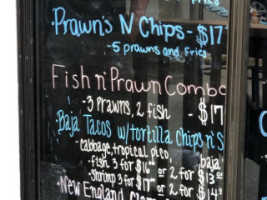 Fries
Prawn's N Chips - $17
-5 prawns and Fries
Fish n' Prawn Combo
-3 Prawns, 2 fish - $17
Baja Tacos w/tortilla Chips n' S
-cabbage, tropical pico, baja
-fish 3 for $16 or 2 for $13
-shromp 3 for $17 or 2 for $14
New England Clam